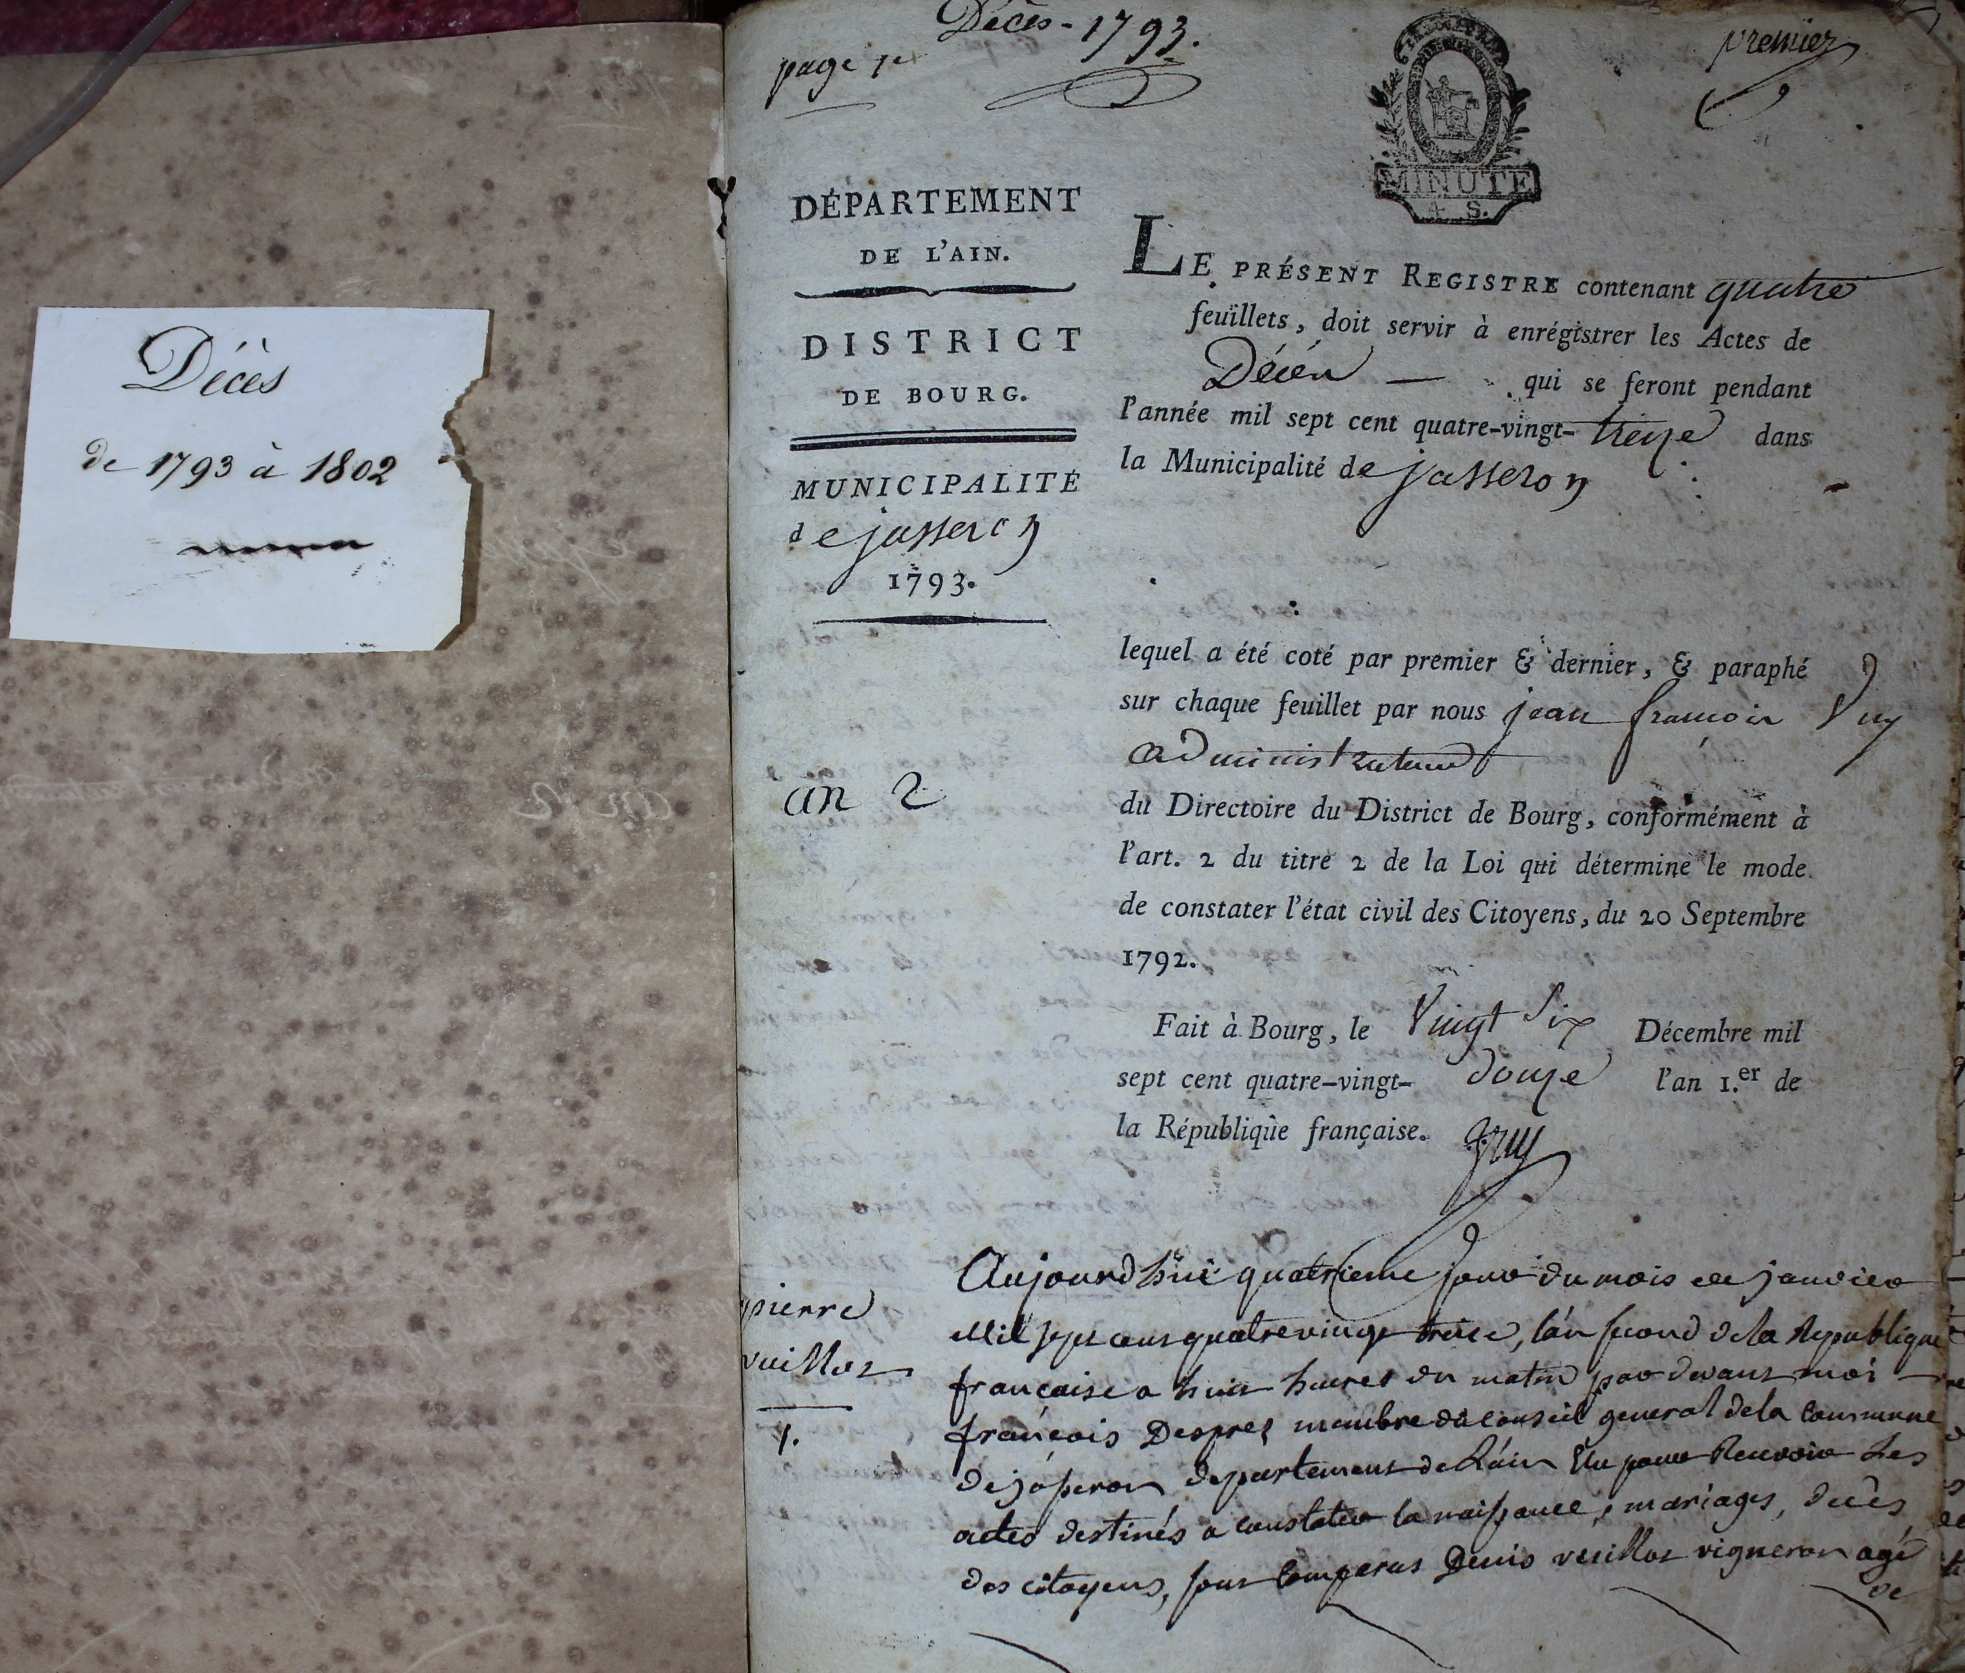 Décès
de 1793 à 1802
Décès - 1793.
page 1e
premier
MINUTE
4 S.
DÉPARTEMENT
DE L'AIN.
DISTRICT
DE BOURG.
MUNICIPALITÉ
de jasseron
1793.
LE PRÉSENT REGISTRE contenant quatre
feuillets, doit servir à enrégistrer les Actes de
Décès — qui se feront pendant
l'année mil sept cent quatre-vingt-treize dans
la Municipalité de jasseron
lequel a été coté par premier & dernier, & paraphé
sur chaque feuillet par nous jean francois Vuy
administrateur
du Directoire du District de Bourg, conformément à
l'art. 2 du titre 2 de la Loi qui détermine le mode
de constater l'état civil des Citoyens, du 20 Septembre
1792.
an 2
Fait à Bourg, le Vingt Six Décembre mil
sept cent quatre-vingt- douze l'an 1.er de
la République française.
pierre
vuillot
1.
Aujourdhui quatrieme jour du mois de janvier
Mil sept cens quatre vingt treise, l'an second de la Republique
française a huit heures du matin par devant moi
françois Desprez membre du conseil general de la Commune
de jasseron departement de L'ain Elu pour Recevoir Les
actes destinés a constater la naissance, mariages, decès
des citoyens, sont comparus Denis vuillot vigneron agé
de